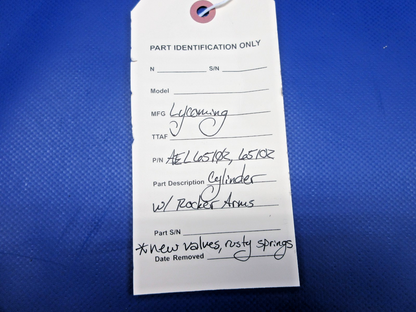 PART IDENTIFICATION ONLY
N ________ S/N ________
Model ________
MFG Lycoming
TTAF ________
P/N AEL65102, 65102
Part Description Cylinder
w/ Rocker Arms
Part S/N ________
*new valves, rusty springs
Date Removed ________